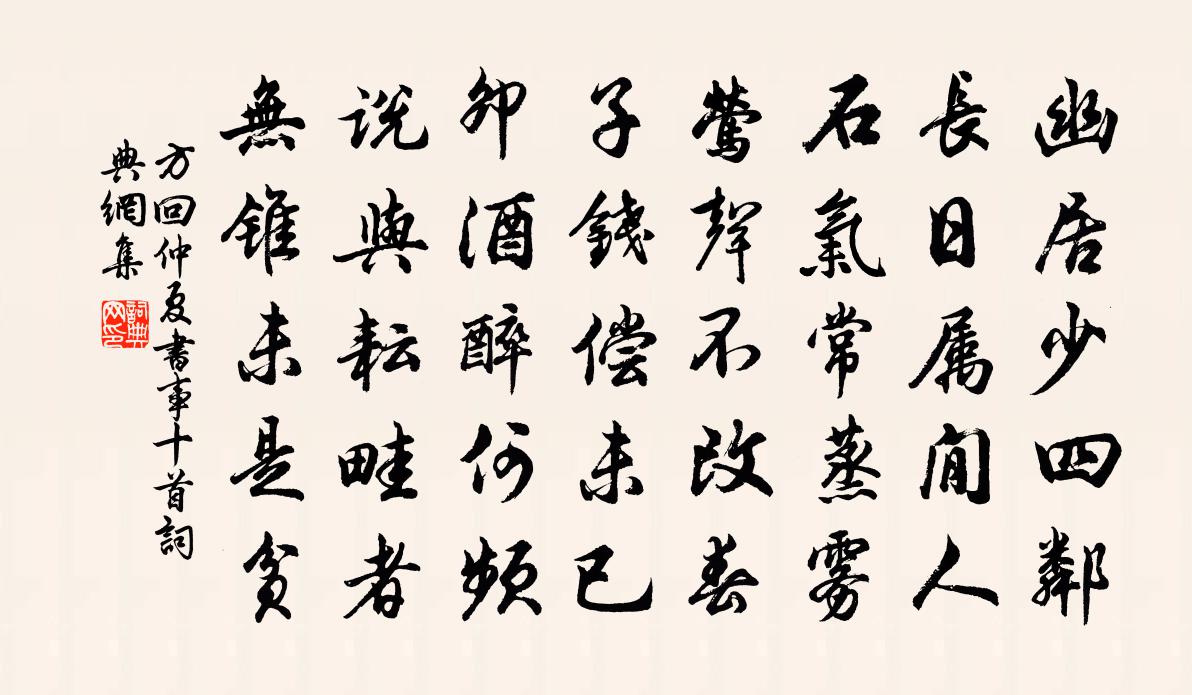 幽居少四鄰
長日属閒人
石氣常蒸雾
鶯聲不改春
子錢偿未已
卯酒醉何頻
説與耘畦者
無錐未是貧
方回仲夏書事十首詞
典網集
詞典
网印